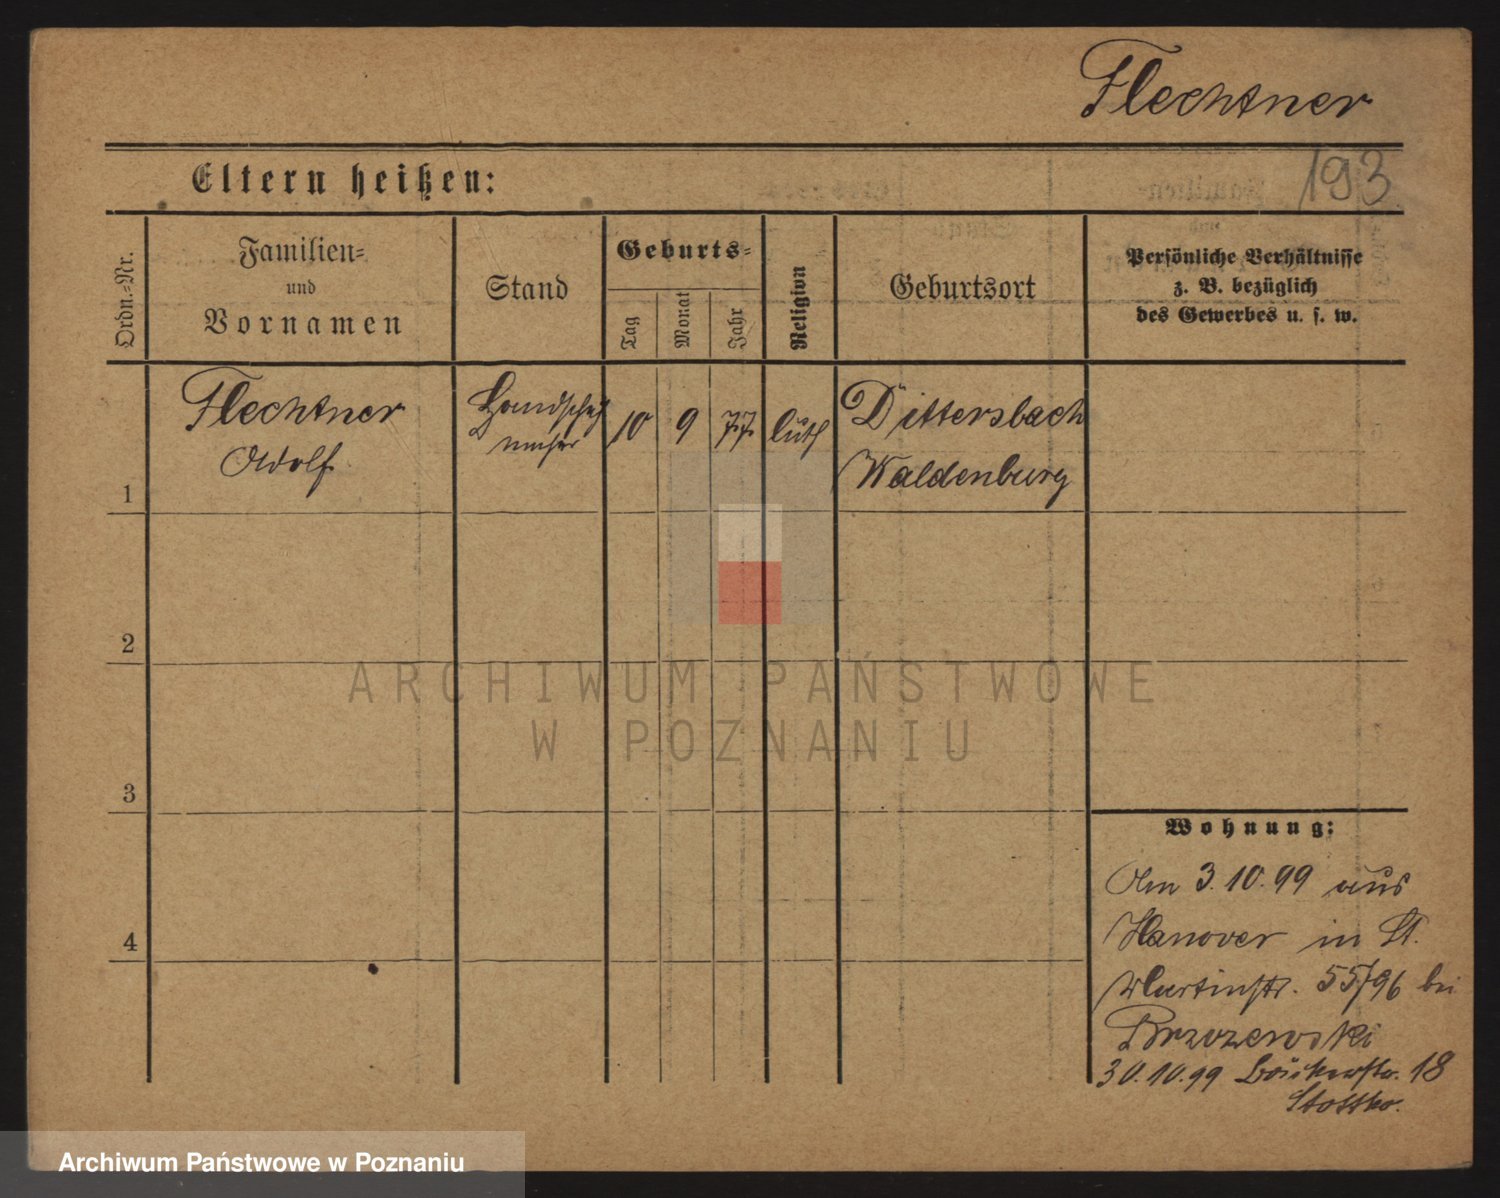 Flechtner
193
Eltern heißen:
Ordn.-Nr.
Familien-
und
Vornamen
Stand
Geburts-
Tag
Monat
Jahr
Religion
Geburtsort
Persönliche Verhältnisse
z. B. bezüglich
des Gewerbes u. s. w.
Flechtner
Adolf
Handschuh
macher
10
9
77
luth
Dittersbach
Waldenburg
1
2
3
4
ARCHIWUM PAŃSTWOWE
W POZNANIU
Wohnung:
Am 3.10.99 aus
Hanover in St.
Martinstr. 55/96 bei
Brzozewski
30.10.99 Bäckerstr. 18
Archiwum Państwowe w Poznaniu